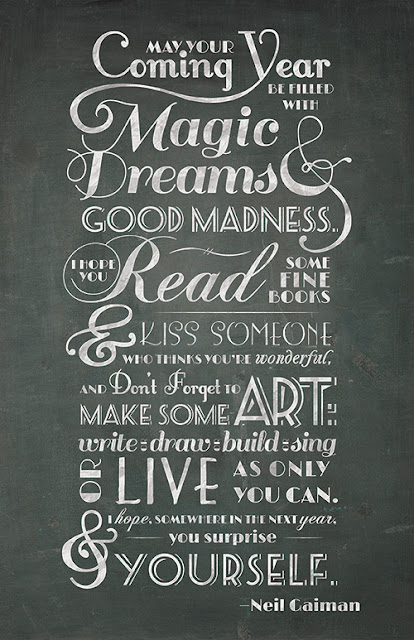 MAY YOUR
Coming Year
BE FILLED
WITH
Magic
Dreams &
GOOD MADNESS.
I HOPE
YOU
Read
SOME
FINE
BOOKS
& KISS SOMEONE
WHO THINKS YOU'RE wonderful,
AND Don't Forget TO
MAKE SOME ART:
write - draw - build - sing
OR LIVE AS ONLY
YOU CAN.
& I hope, SOMEWHERE IN THE NEXT year,
you surprise
YOURSELF.
–Neil Gaiman